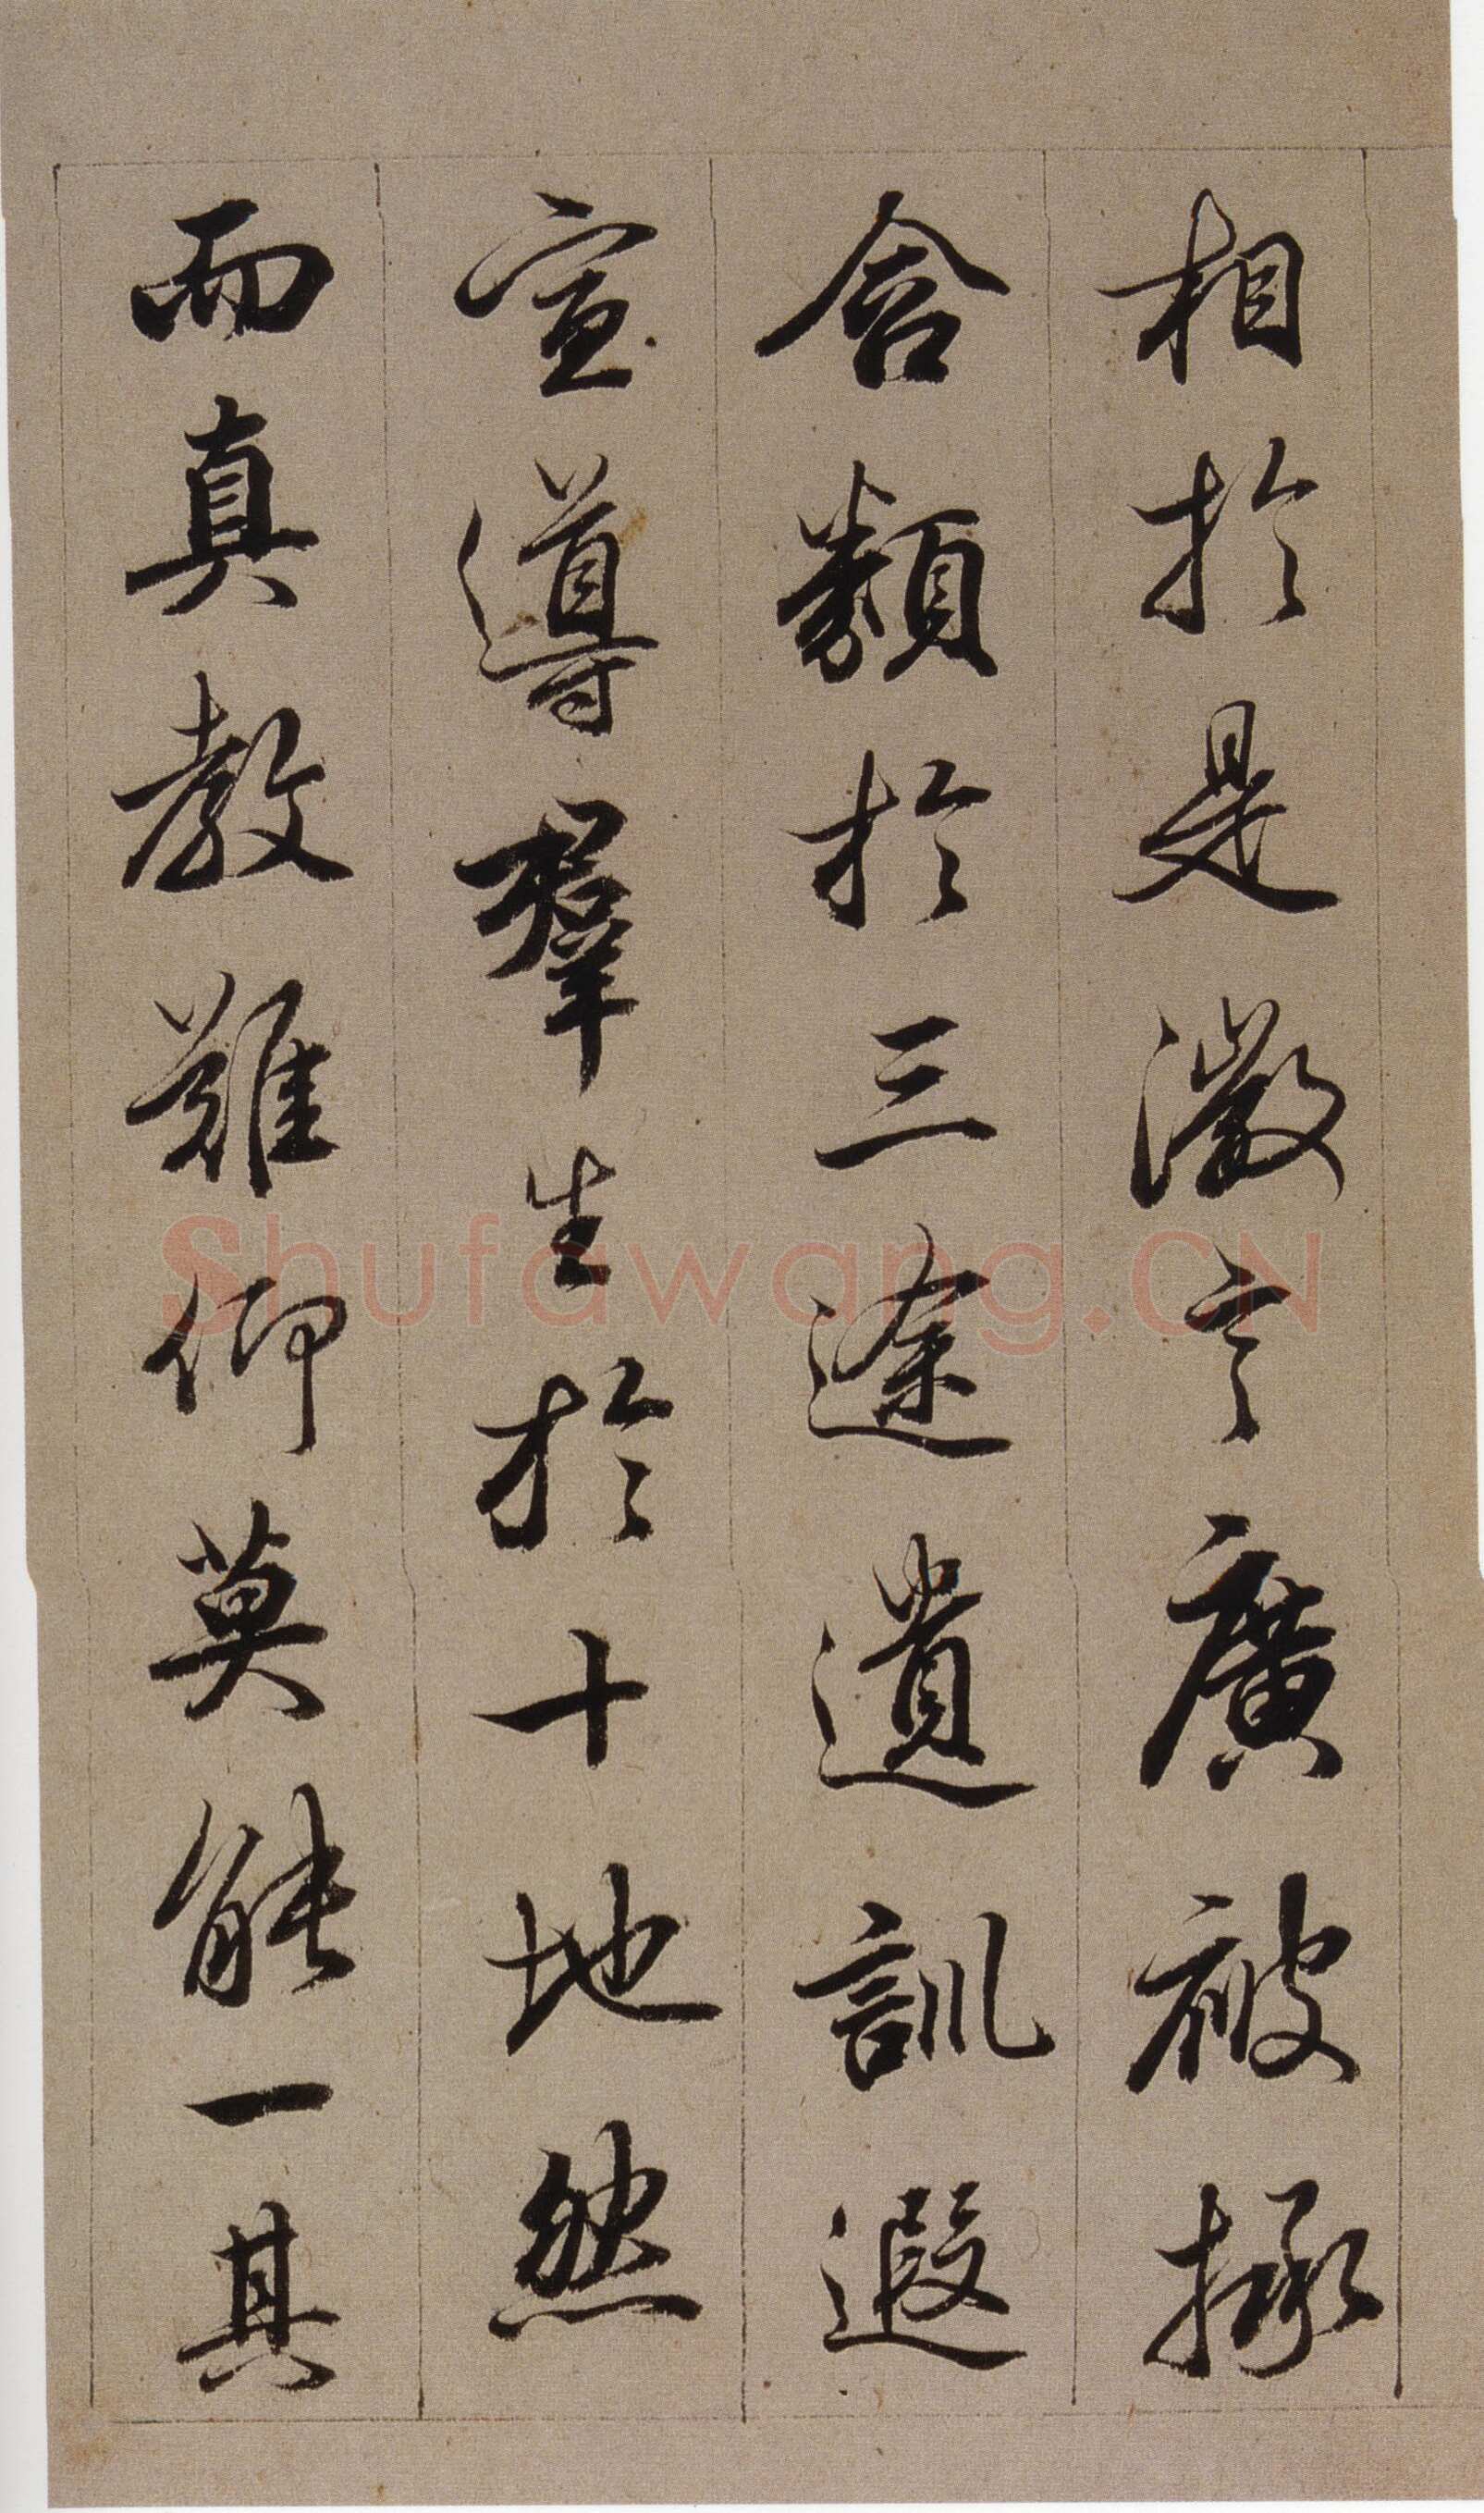 相於是微言廣被拯
含類於三途遺訓遐
宣導羣生於十地然
而真教難仰莫能一其
Shufawang.CN